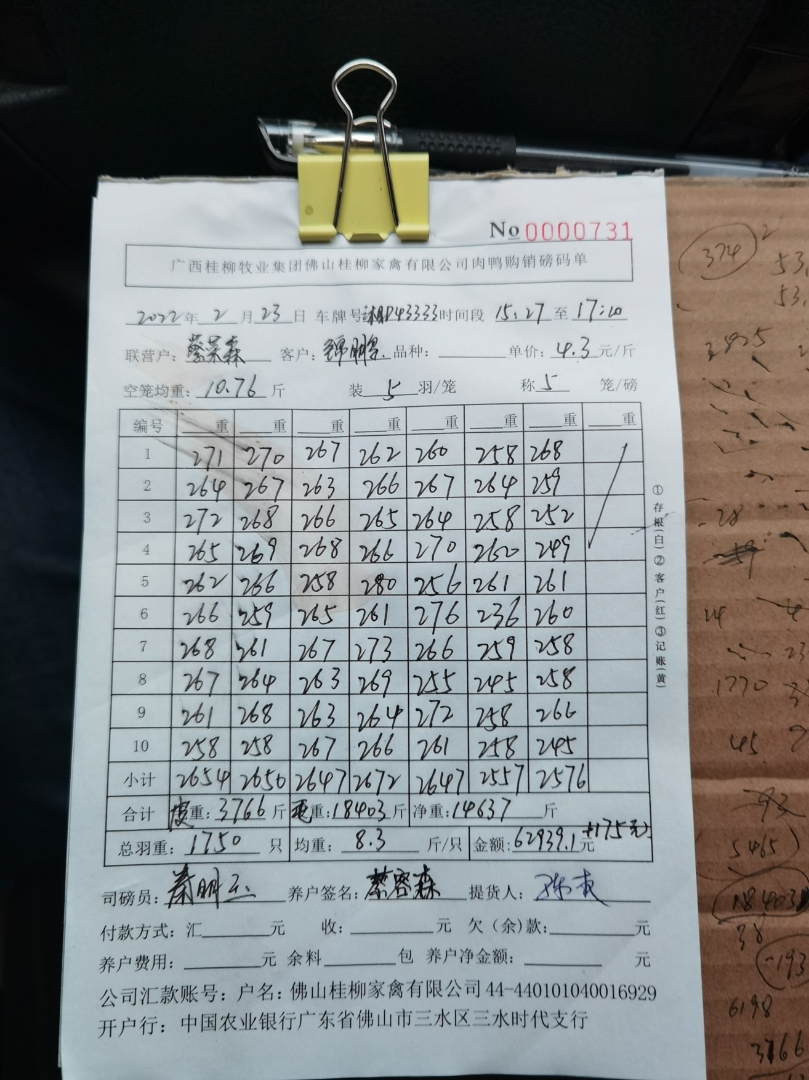 No 0000731
广西桂柳牧业集团佛山桂柳家禽有限公司肉鸭购销磅码单
2022年 2 月 23 日 车牌号 P43333 时间段 15:27 至 17:20
联营户: 客户: 锦鹏 品种: 单价: 4.3 元/斤
空笼均重: 10.76 斤 装 5 羽/笼 称 5 笼/磅
编号 重 重 重 重 重 重 重 重
1 271 270 267 262 260 258 268
2 264 267 263 266 267 264 259
3 272 268 266 265 264 258 252
4 265 269 268 266 270 260 249
5 262 266 258 280 256 261 261
6 266 259 265 261 276 236 260
7 268 261 267 273 266 259 258
8 267 264 263 269 255 245 258
9 261 268 263 264 272 258 266
10 258 258 267 266 261 258 245
小计 2654 2650 2647 2672 2647 2557 2576
合计 重: 3766 斤 重: 18403 斤 净重: 14637 斤
总羽重: 1750 只 均重: 8.3 斤/只 金额: 62939.1 元 +175元
司磅员: 养户签名: 提货人:
付款方式: 汇 元 收: 元 欠(余)款: 元
养户费用: 元 余料 包 养户净金额: 元
公司汇款账号: 户名: 佛山桂柳家禽有限公司 44-440101040016929
开户行: 中国农业银行广东省佛山市三水区三水时代支行
①存根(白)②客户(红)③记账(黄)
374
53.
53.
1770
45
5465
18403
38
-193
6198
3766